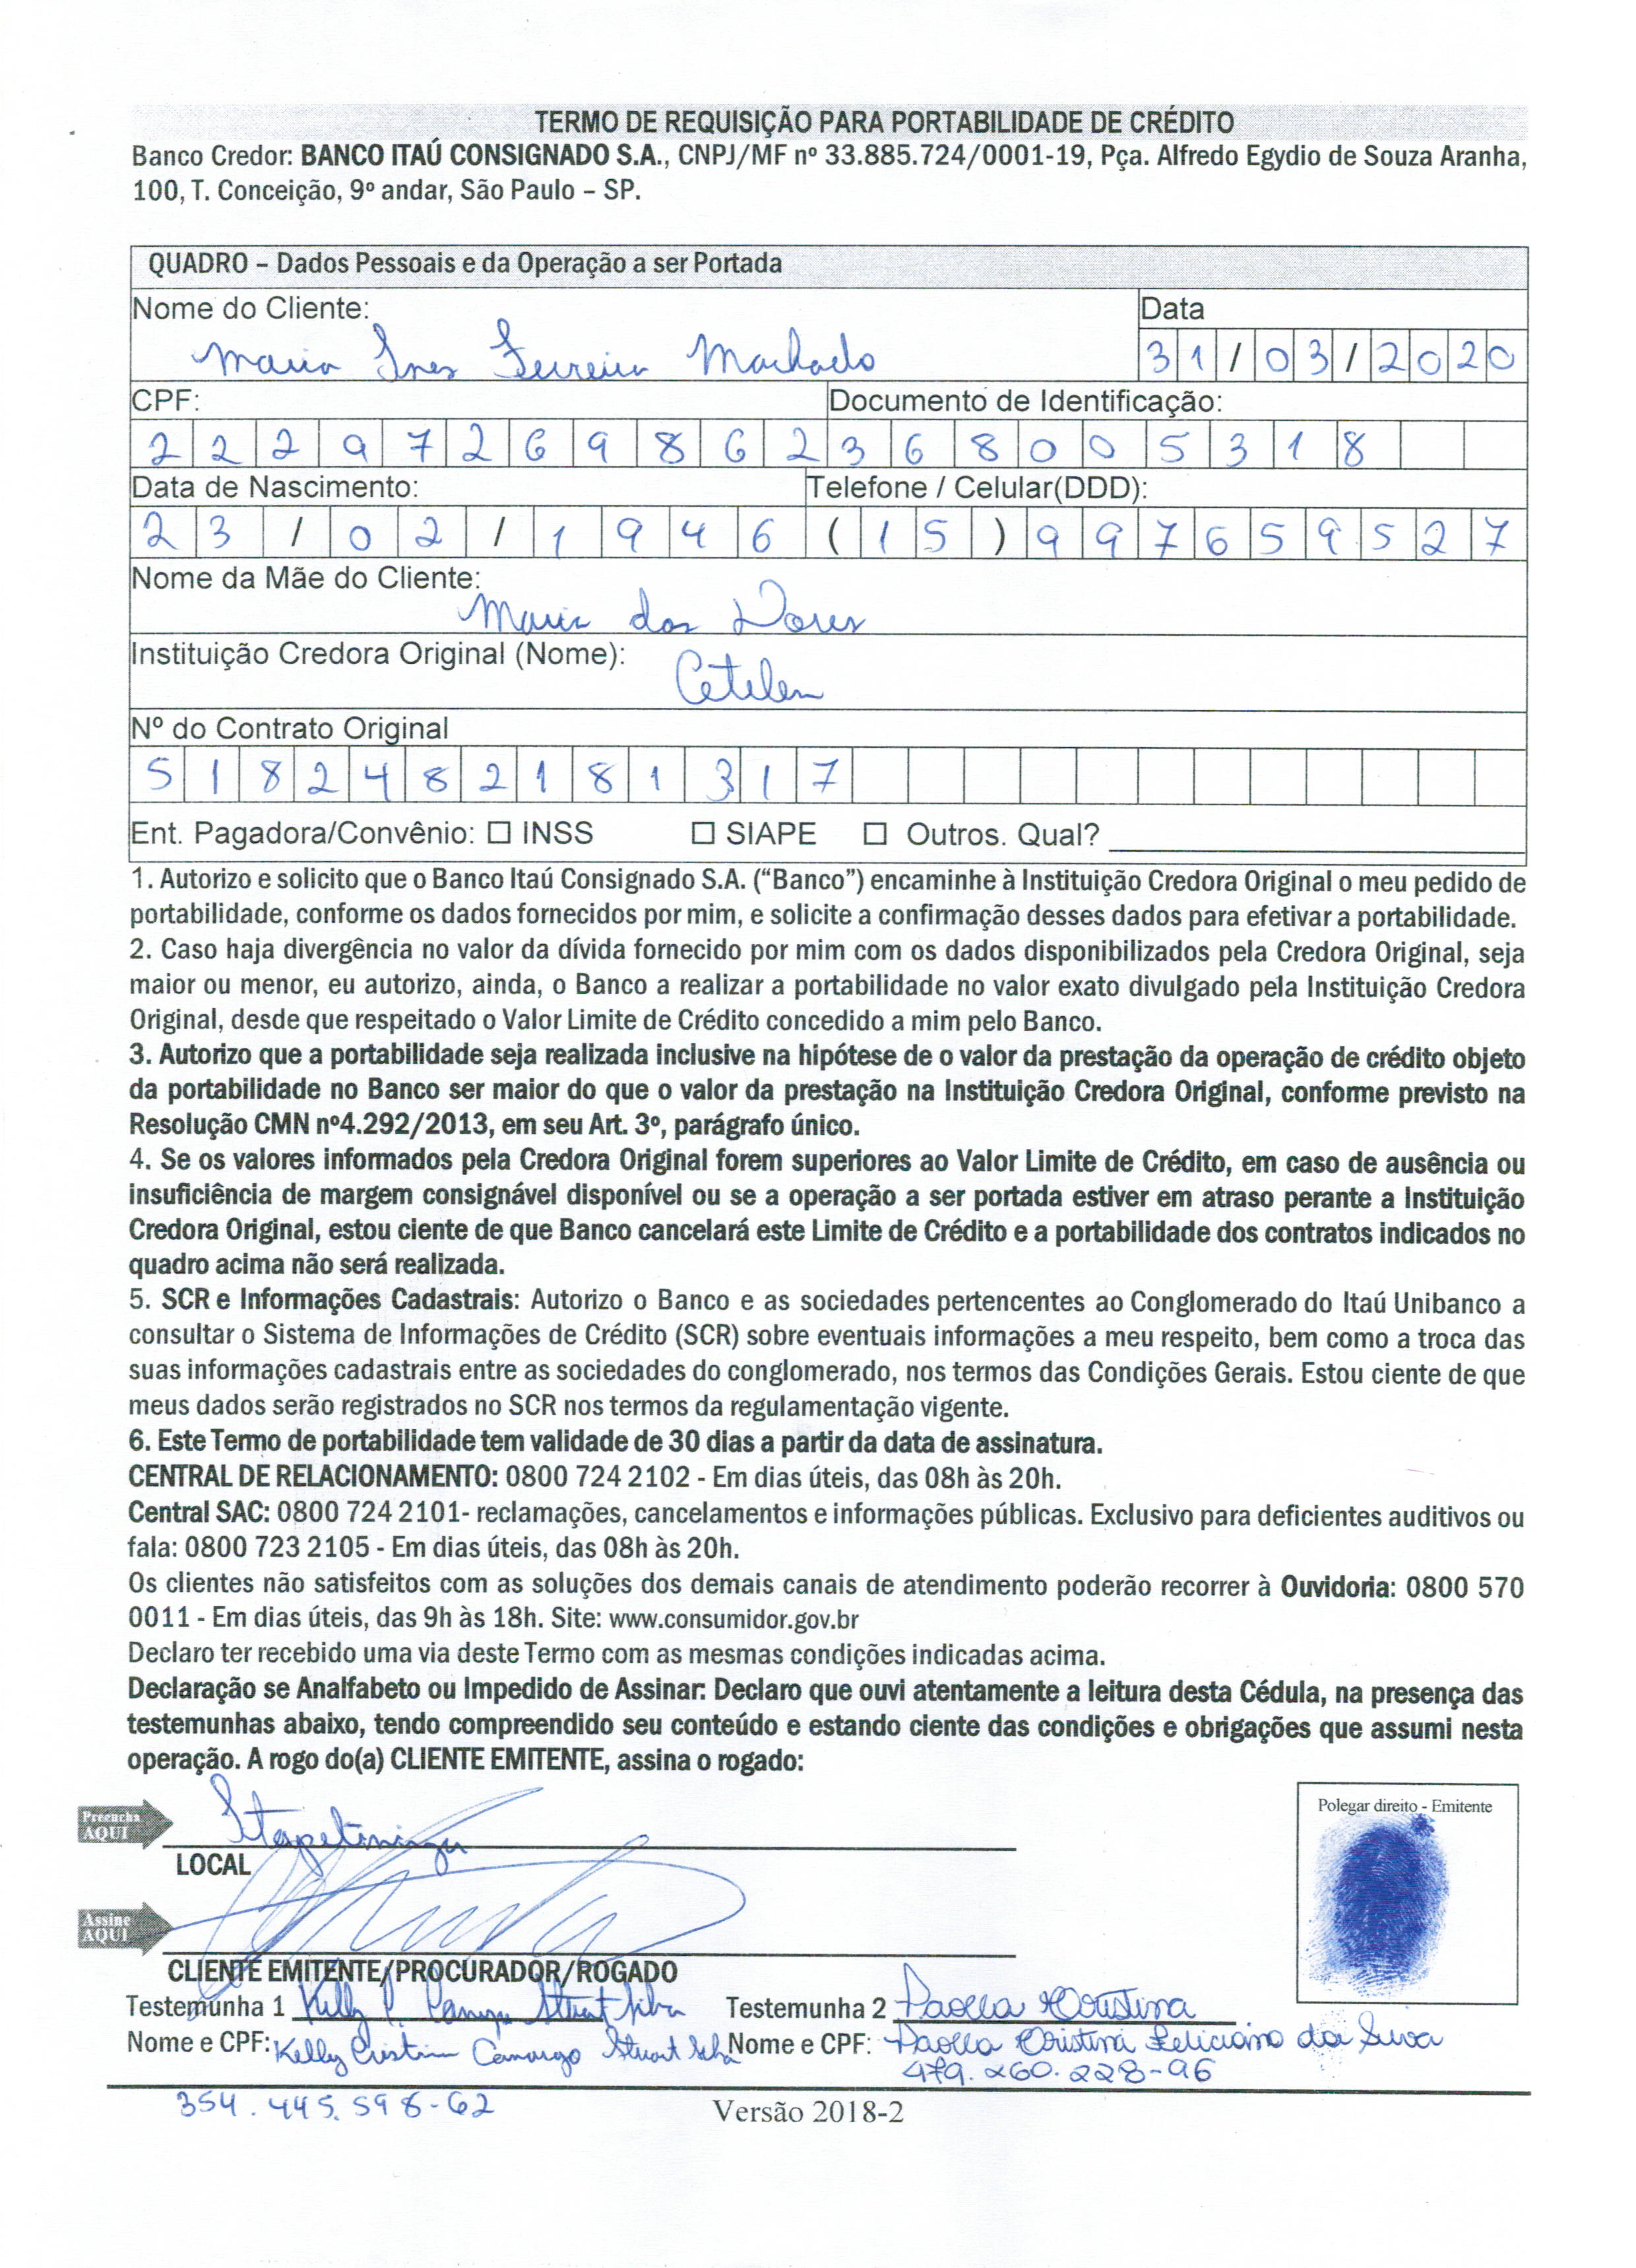 TERMO DE REQUISIÇÃO PARA PORTABILIDADE DE CRÉDITO
Banco Credor: BANCO ITAÚ CONSIGNADO S.A., CNPJ/MF nº 33.885.724/0001-19, Pça. Alfredo Egydio de Souza Aranha,
100, T. Conceição, 9º andar, São Paulo – SP.
QUADRO – Dados Pessoais e da Operação a ser Portada
Nome do Cliente: Data
Maria Ines Ferreira Machado 31/03/2020
CPF: Documento de Identificação:
22297269862 368005318
Data de Nascimento: Telefone / Celular(DDD):
23/02/1946 (15)997659527
Nome da Mãe do Cliente:
Maria das Dores
Instituição Credora Original (Nome): Cetelem
Nº do Contrato Original
5182482181317
Ent. Pagadora/Convênio: ☐ INSS ☐ SIAPE ☐ Outros. Qual?
1. Autorizo e solicito que o Banco Itaú Consignado S.A. (“Banco”) encaminhe à Instituição Credora Original o meu pedido de
portabilidade, conforme os dados fornecidos por mim, e solicite a confirmação desses dados para efetivar a portabilidade.
2. Caso haja divergência no valor da dívida fornecido por mim com os dados disponibilizados pela Credora Original, seja
maior ou menor, eu autorizo, ainda, o Banco a realizar a portabilidade no valor exato divulgado pela Instituição Credora
Original, desde que respeitado o Valor Limite de Crédito concedido a mim pelo Banco.
3. Autorizo que a portabilidade seja realizada inclusive na hipótese de o valor da prestação da operação de crédito objeto
da portabilidade no Banco ser maior do que o valor da prestação na Instituição Credora Original, conforme previsto na
Resolução CMN nº4.292/2013, em seu Art. 3º, parágrafo único.
4. Se os valores informados pela Credora Original forem superiores ao Valor Limite de Crédito, em caso de ausência ou
insuficiência de margem consignável disponível ou se a operação a ser portada estiver em atraso perante a Instituição
Credora Original, estou ciente de que Banco cancelará este Limite de Crédito e a portabilidade dos contratos indicados no
quadro acima não será realizada.
5. SCR e Informações Cadastrais: Autorizo o Banco e as sociedades pertencentes ao Conglomerado do Itaú Unibanco a
consultar o Sistema de Informações de Crédito (SCR) sobre eventuais informações a meu respeito, bem como a troca das
suas informações cadastrais entre as sociedades do conglomerado, nos termos das Condições Gerais. Estou ciente de que
meus dados serão registrados no SCR nos termos da regulamentação vigente.
6. Este Termo de portabilidade tem validade de 30 dias a partir da data de assinatura.
CENTRAL DE RELACIONAMENTO: 0800 724 2102 - Em dias úteis, das 08h às 20h.
Central SAC: 0800 724 2101- reclamações, cancelamentos e informações públicas. Exclusivo para deficientes auditivos ou
fala: 0800 723 2105 - Em dias úteis, das 08h às 20h.
Os clientes não satisfeitos com as soluções dos demais canais de atendimento poderão recorrer à Ouvidoria: 0800 570
0011 - Em dias úteis, das 9h às 18h. Site: www.consumidor.gov.br
Declaro ter recebido uma via deste Termo com as mesmas condições indicadas acima.
Declaração se Analfabeto ou Impedido de Assinar: Declaro que ouvi atentamente a leitura desta Cédula, na presença das
testemunhas abaixo, tendo compreendido seu conteúdo e estando ciente das condições e obrigações que assumi nesta
operação. A rogo do(a) CLIENTE EMITENTE, assina o rogado:
Polegar direito - Emitente
Preencha AQUI Itapetininga
LOCAL
Assine AQUI
CLIENTE EMITENTE/PROCURADOR/ROGADO
Testemunha 1 Kelly Testemunha 2 Paolla Cristina
Nome e CPF: Kelly Cristina Camargo Stuart Nome e CPF: Paolla Cristina Feliciano da Silva
479.260.228-96
354.445.598-62
Versão 2018-2